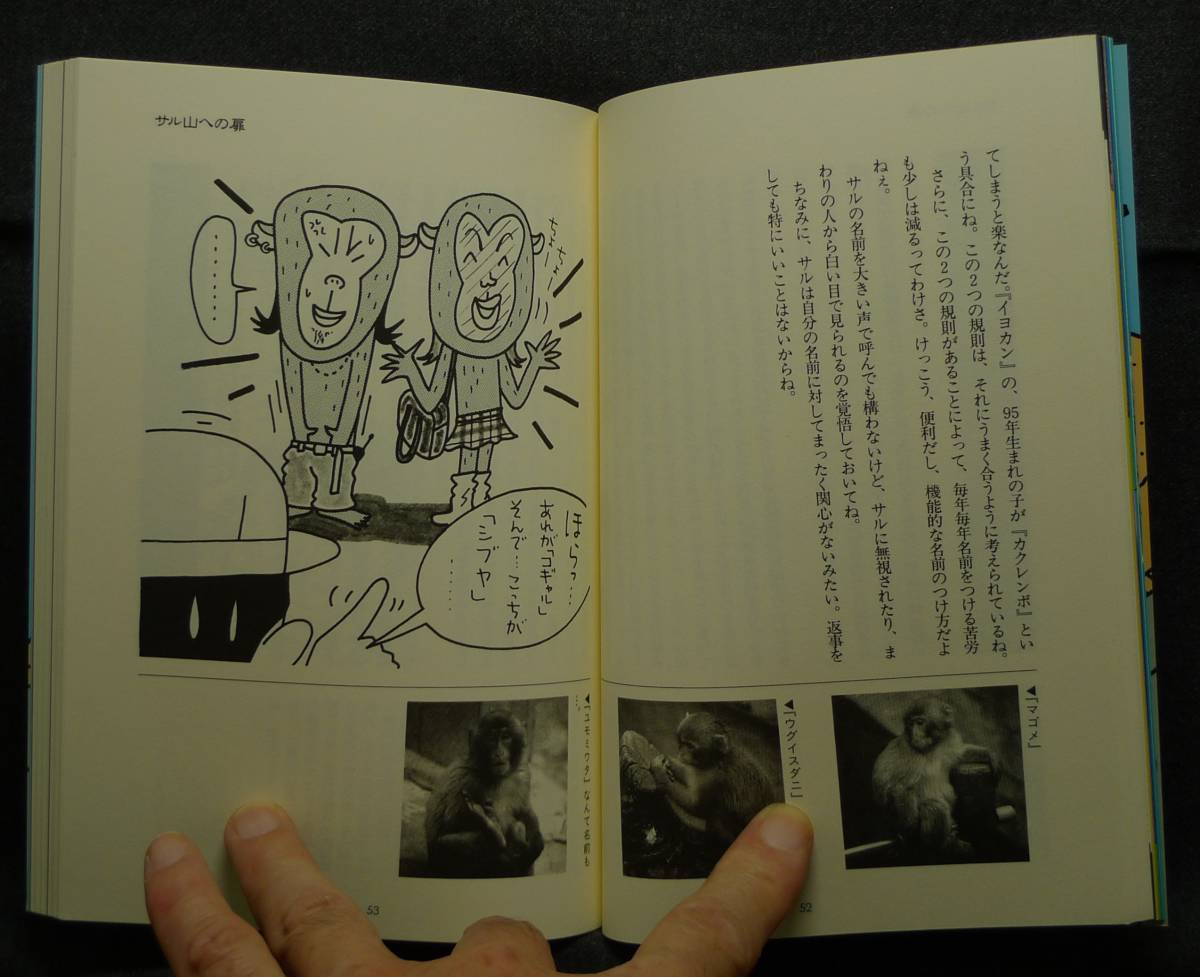 てしまうと楽なんだ。『イヨカン』の、95年生まれの子が『カクレンボ』とい
う具合にね。この2つの規則は、それにうまく合うように考えられているね。
さらに、この2つの規則があることによって、毎年毎年名前をつける苦労
も少しは減るってわけさ。けっこう、便利だし、機能的な名前のつけ方だよ
ねぇ。
サルの名前を大きい声で呼んでも構わないけど、サルに無視されたり、ま
わりの人から白い目で見られるのを覚悟しておいてね。
ちなみに、サルは自分の名前に対してまったく関心がないみたい。返事を
しても特にいいことはないからね。
◀『マゴメ』
◀『ウグイスダニ』
52
サル山への扉
ちょーちょー
………
ほらっ…
あれが「コギャル」
そんで…こっちが
「シブヤ」
……
◀『ユモミウタ』なんて名前も
…。
53